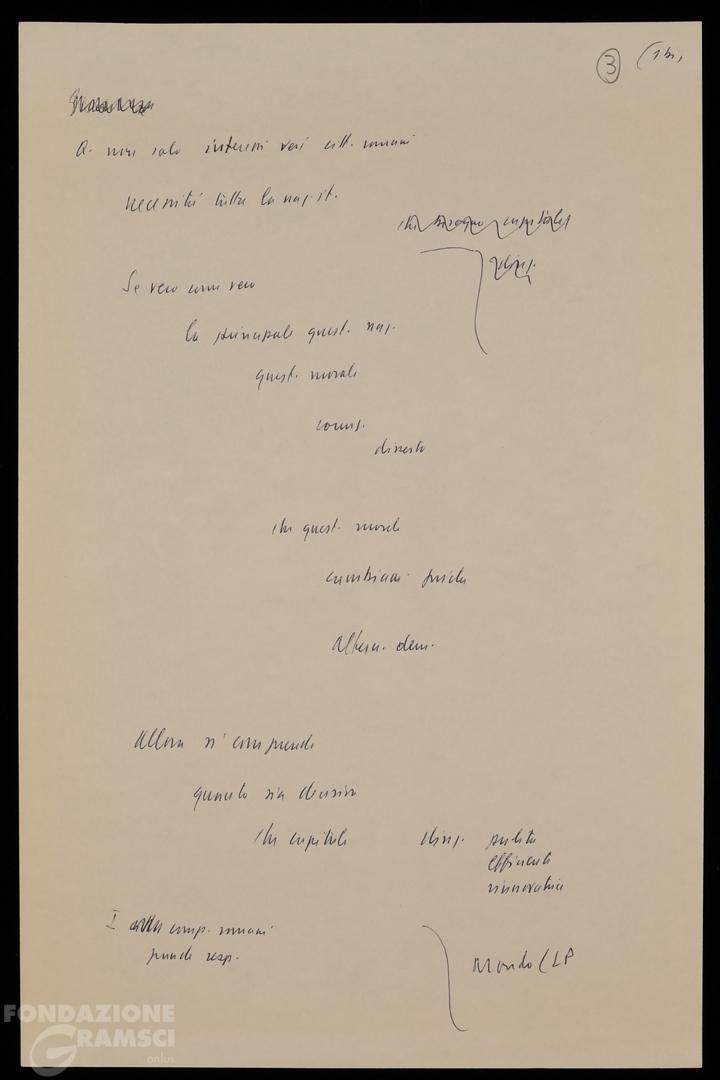 3 (1 bis
Q. non solo interessi veri citt. romani
necessità tutta la naz. it.
che bisogno capitale
Se vero com'è vero
la principale quest. naz.
quest. morale
comun.
diverso
che quest. morale
cambiam. guida
Altern. dem.
Allora si comprende
quanto sia decisivo
che capitale dirig. pulita
efficiente
rinnovatrice
I comp. romani
grande resp.
Mondo (LP
FONDAZIONE
GRAMSCI
onlus